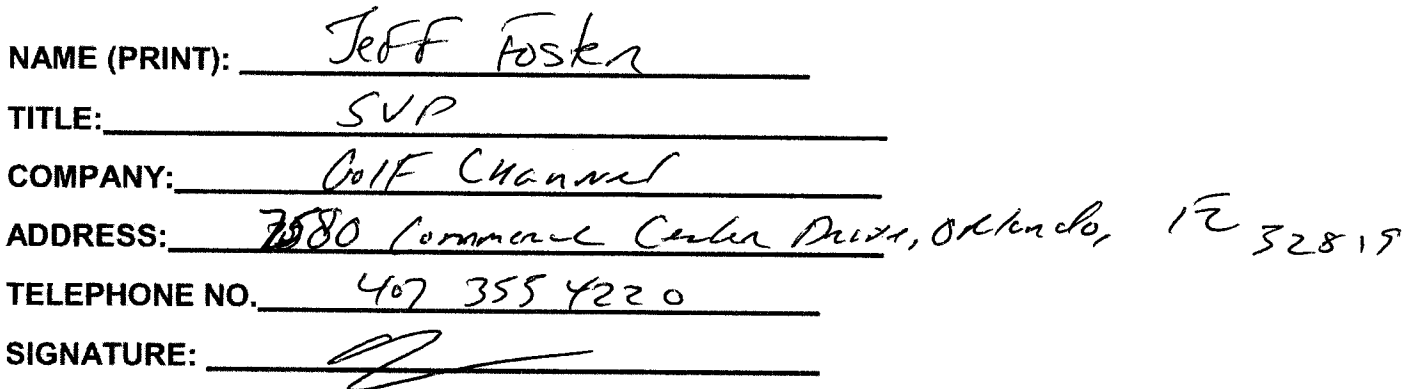 NAME (PRINT): Jeff Foster
TITLE: SVP
COMPANY: Golf Channel
ADDRESS: 7580 Commerce Center Drive, Orlando, FL 32819
TELEPHONE NO. 407 355 4220
SIGNATURE: